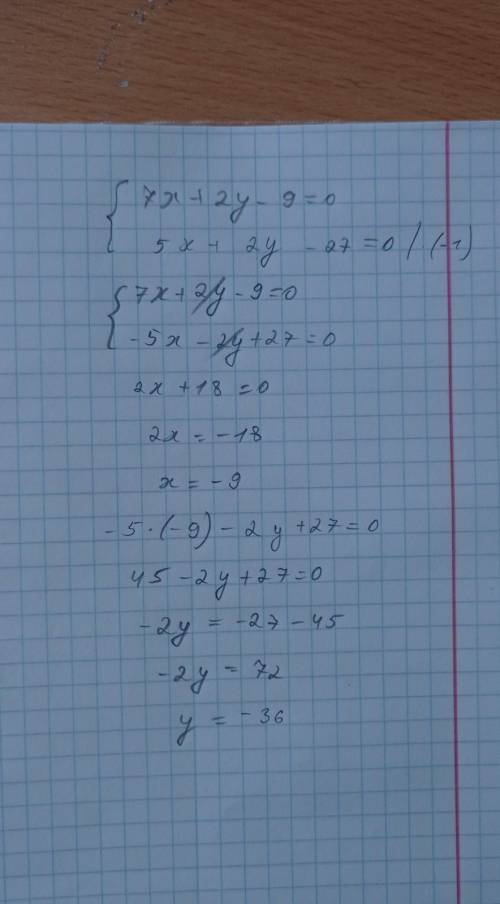 7x + 2y - 9 = 0
5x + 2y - 27 = 0 / (-1)
7x + 2y - 9 = 0
-5x - 2y + 27 = 0
2x + 18 = 0
2x = -18
x = -9
-5 · (-9) - 2y + 27 = 0
45 - 2y + 27 = 0
-2y = -27 - 45
-2y = 72
y = -36